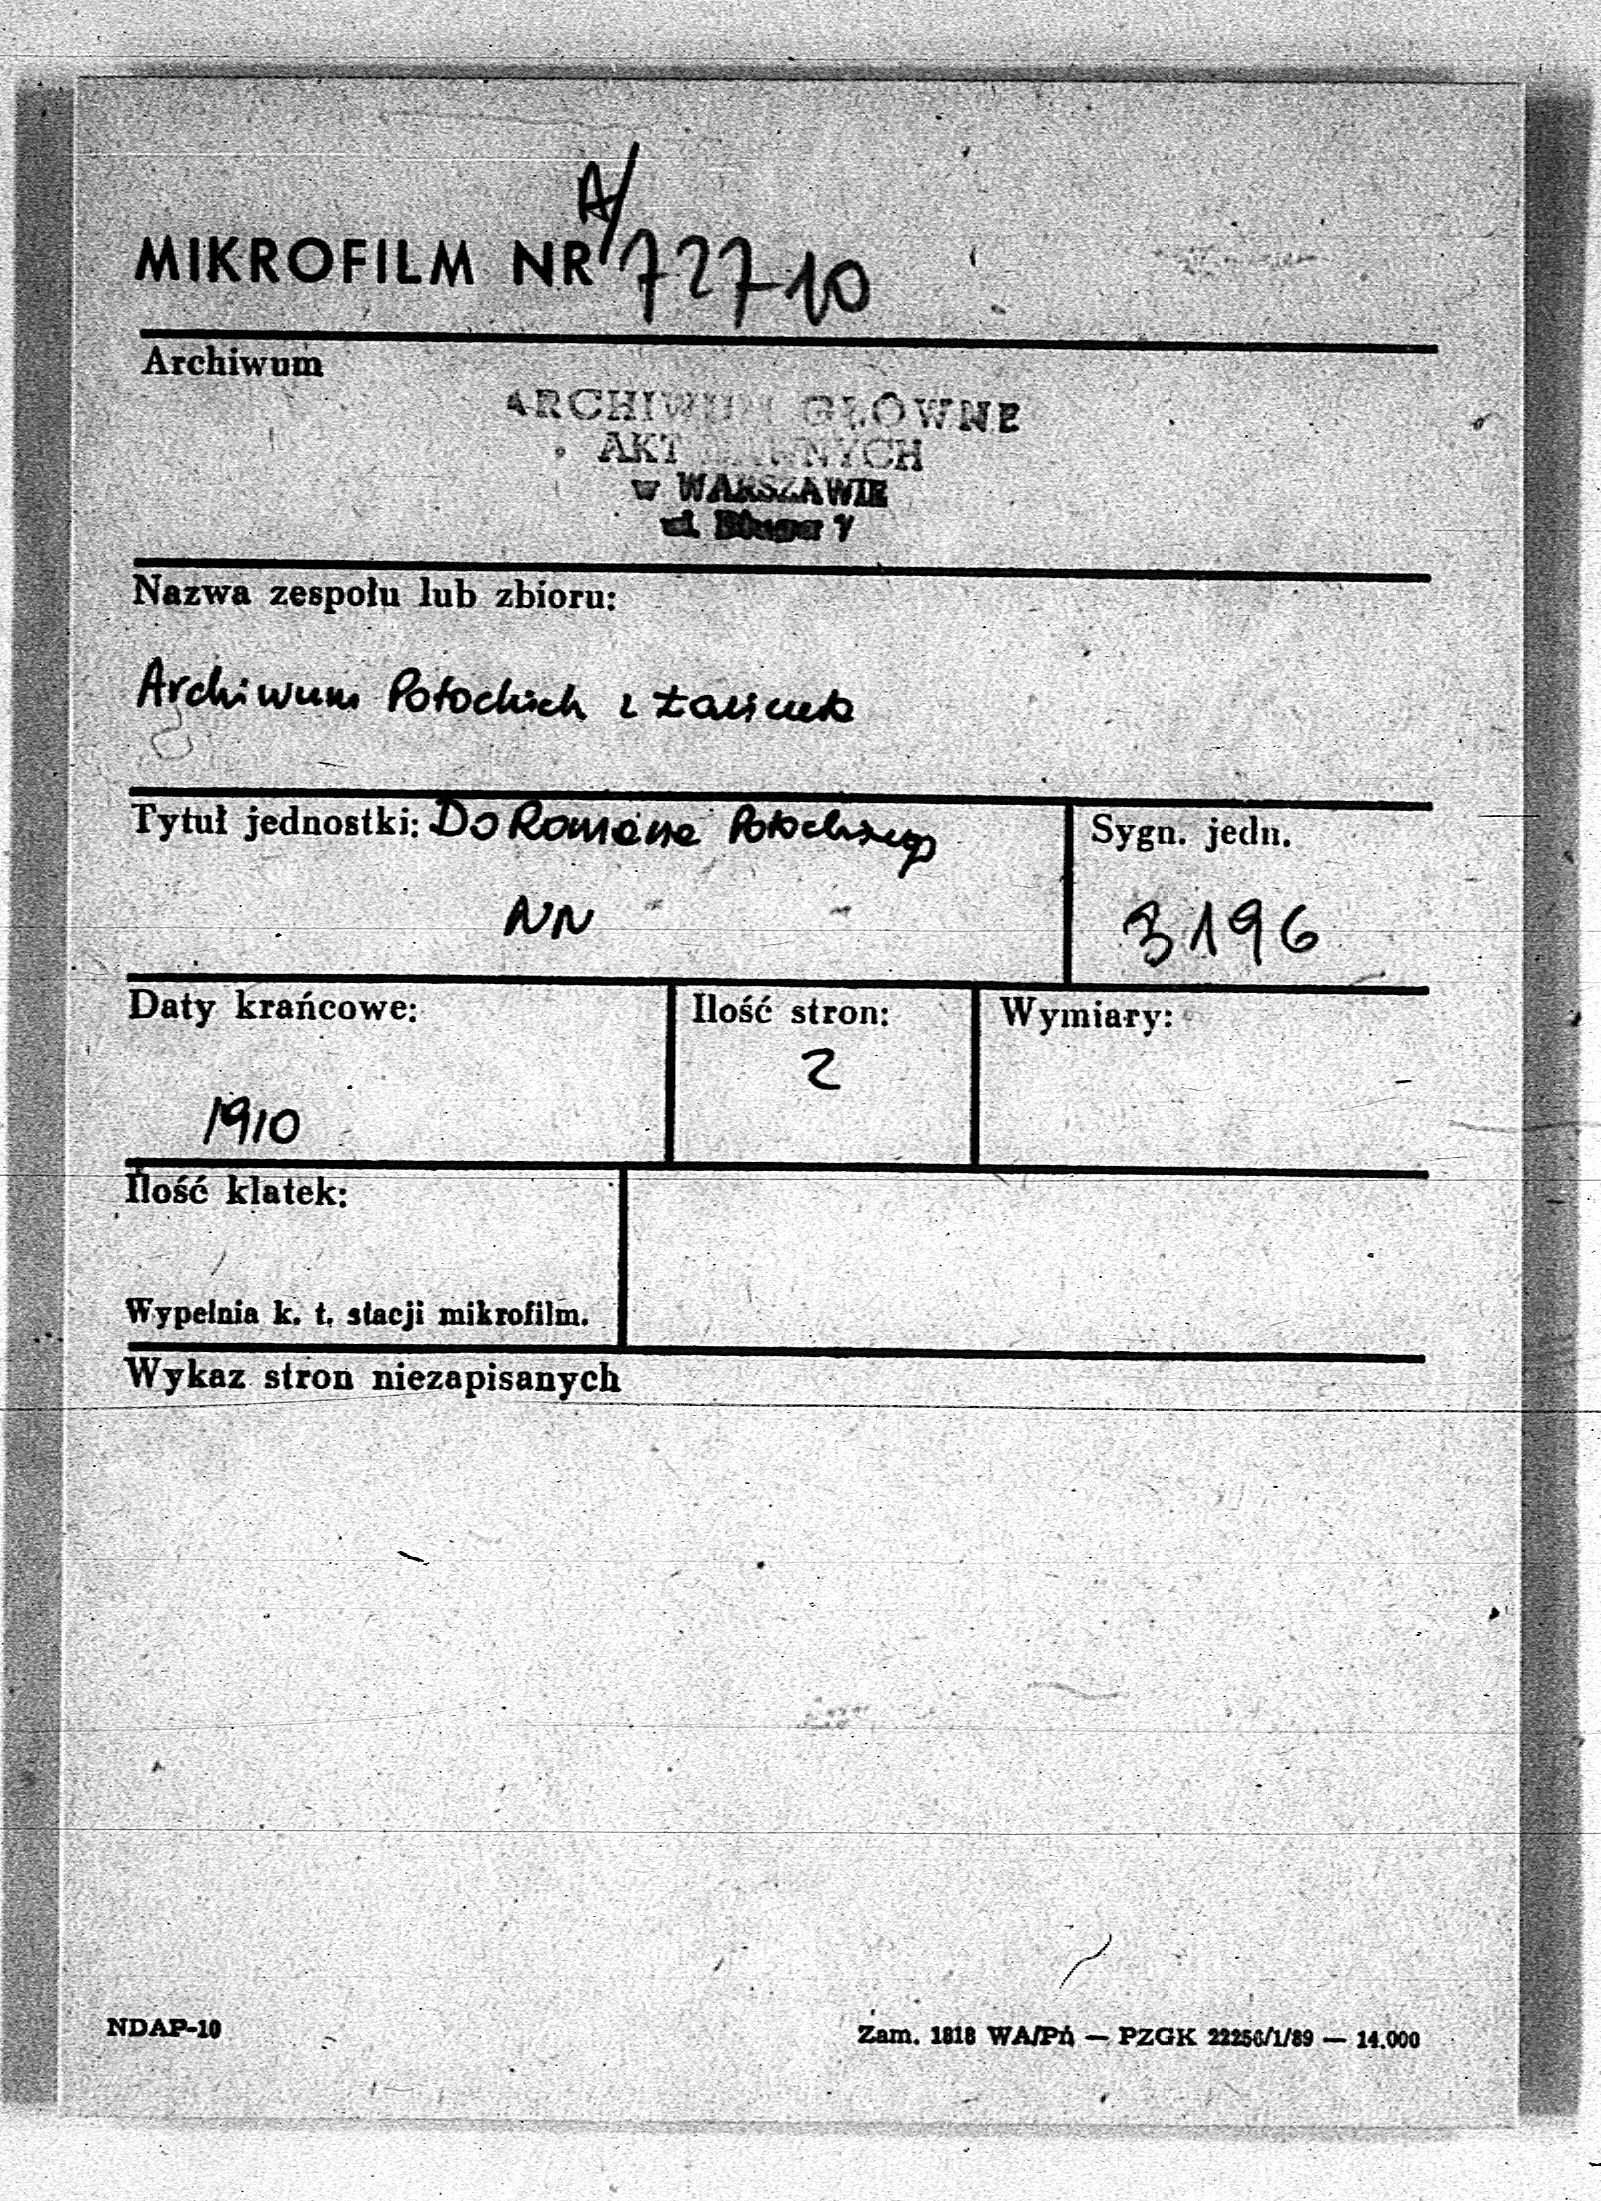 MIKROFILM NR A/72710
Archiwum
ARCHIWUM GŁÓWNE
AKT DAWNYCH
w WARSZAWIE
ul. Długa 7
Nazwa zespołu lub zbioru:
Archiwum Potockich z Łańcuta
Tytuł jednostki: Do Romana Potockiego
NN
Sygn. jedn.
3196
Daty krańcowe:
1910
Ilość stron:
2
Wymiary:
Ilość klatek:
Wypełnia k. t. stacji mikrofilm.
Wykaz stron niezapisanych
NDAP-10
Zam. 1818 WA/Pń — PZGK 22256/1/89 — 14.000